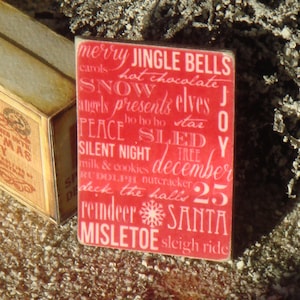 merry JINGLE BELLS
carols hot chocolate
SNOW
angels presents elves
JOY
ho ho ho star
PEACE SLED
SILENT NIGHT TREE
december
milk & cookies
RUDOLPH nutcracker 25
deck the halls
reindeer SANTA
MISLETOE sleigh ride
MAS